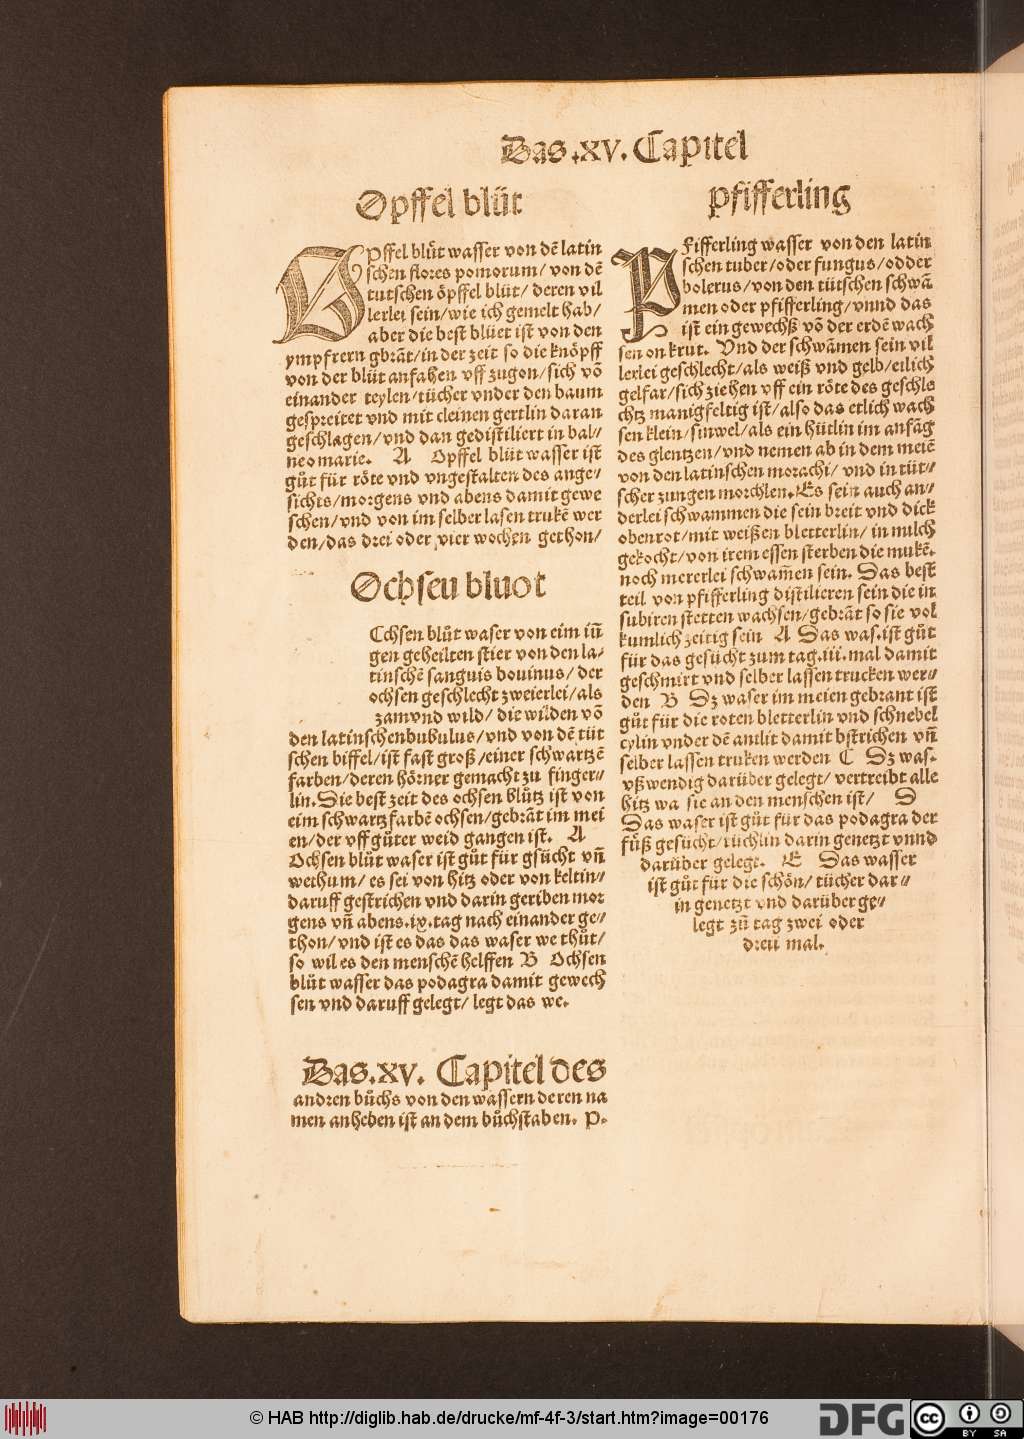 Das .xv. Capitel
Opffel blůt
OPffel blůt wasser von dē latin
schen flores pomorum/ von dē
tutschen öpffel blüt/ deren vil
lerlei sein/wie ich gemelt hab/
aber die best blüet ist von den
ympfrern gbrāt/in der zeit so die knöpff
von der blüt anfahen vff zugon/sich vō
einander teylen/tücher vnder den baum
gespreitet vnd mit cleinen gertlin daran
geschlagen/vnd dan gedistiliert in bal⸗
neo marie. A Opffel blüt wasser ist
gůt für röte vnd vngestalten des ange⸗
sichts/morgens vnd abens damit gewe
schen/vnd von im selber lasen trukē wer
den/das drei oder vier wochen gethon/
Ochseu bluot
Cchsen blůt waser von eim iūn
gen geheilten stier von den la⸗
tinschē sanguis bouinus/ der
ochsen geschlecht zweierlei/als
zam vnd wild/ die wilden vō
den latinschenbubulus/vnd von dē tüt
schen biffel/ist fast groß/einer schwartzē
farben/deren hörner gemacht zu finger⸗
lin.Die best zeit des ochsen blůtz ist von
eim schwartzfarbē ochsen/gebrāt im mei
en/der vff gůter weid gangen ist. A
Ochsen blůt waser ist gůt für gsücht vn̄
wethum/ es sei von hitz oder von keltin⸗
daruff gestrichen vnd darin geriben mor
gens vn̄ abens.ix.tag nach einander ge⸗
thon/vnd ist es das das waser we thůt/
so wil es den menschē helffen B Ochsen
blůt wasser das podagra damit gewech
sen vnd daruff gelegt/ legt das we.
Das.xv. Capitel des
andren bůchs von den wassern deren na
men anheben ist an dem bůchstaben. P.
Pfifferling
PFifferling wasser von den latin
schen tuber/oder fungus/odder
bolerus/von den tütschen schwā
men oder pfifferling/vnnd das
ist ein gewechß vō der erdē wach
sen on krut. Vnd der schwāmen sein vil
lerlei geschlecht/als weiß vnd gelb/etlich
gelfar/sich ziehen vff ein röte des geschle
chtz manigfeltig ist/also das etlich wach
sen klein/sinwel/als ein hütlin im anfāg
des glentzen/vnd nemen ab in dem meiē
von den latinschen morachi/ vnd in tüt⸗
scher zungen morchlen.Es sein auch an⸗
derlei schwammen die sein breit vnd dick
obenrot/mit weißen bletterlin/ in milch
gekocht/von irem essen sterben die mukē.
noch mererlei schwam̄en sein. Das best
teil von pfifferling distilieren sein die in
subiren stetten wachsen/gebrāt so sie vol
kumlich zeitig sein A Das was.ist gůt
für das gesücht zum tag.iii.mal damit
geschmirt vnd selber lassen trucken wer⸗
den B Dz waser im meien gebrant ist
gůt für die roten bletterlin vnd schnebel
cylin vnder dē antlit damit bstrichen vn̄
selber lassen truken werden C Dz was.
vßwendig darüber gelegt/ vertreibt alle
hitz wa sie an den menschen ist/ D
Das waser ist gůt für das podagra der
füß gesücht/tüchlin darin genetzt vnnd
darüber gelegt. E Das wasser
ist gůt für die schön/ tücher dar⸗
in genetzt vnd darüber ge⸗
legt zů tag zwei oder
dreü mal.
© HAB http://diglib.hab.de/drucke/mf-4f-3/start.htm?image=00176
DFG
cc BY SA